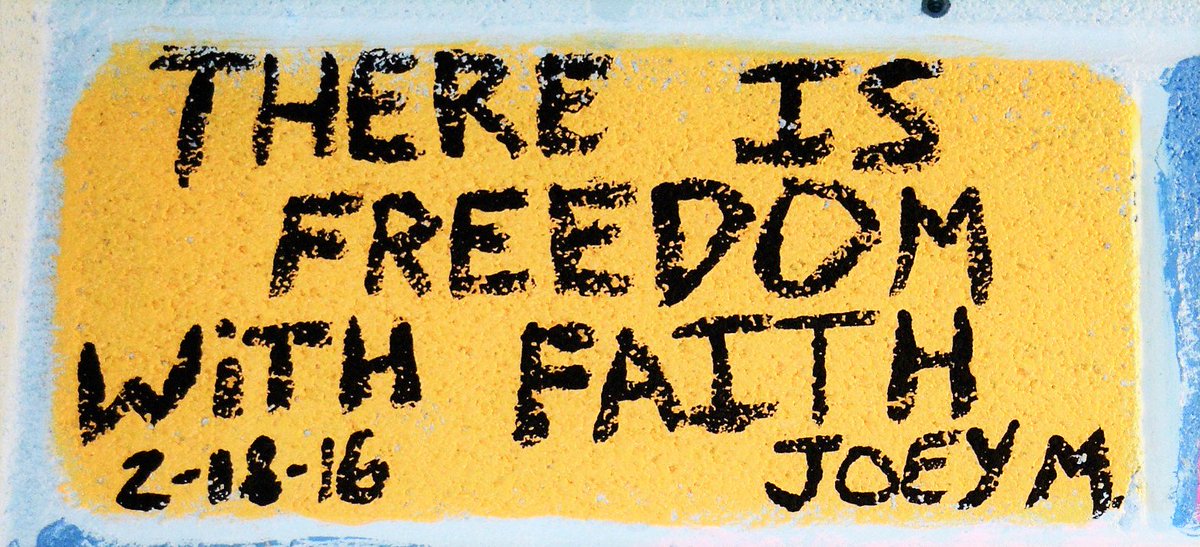 THERE IS
FREEDOM
WiTH FAITH
2-18-16 JOEY M.